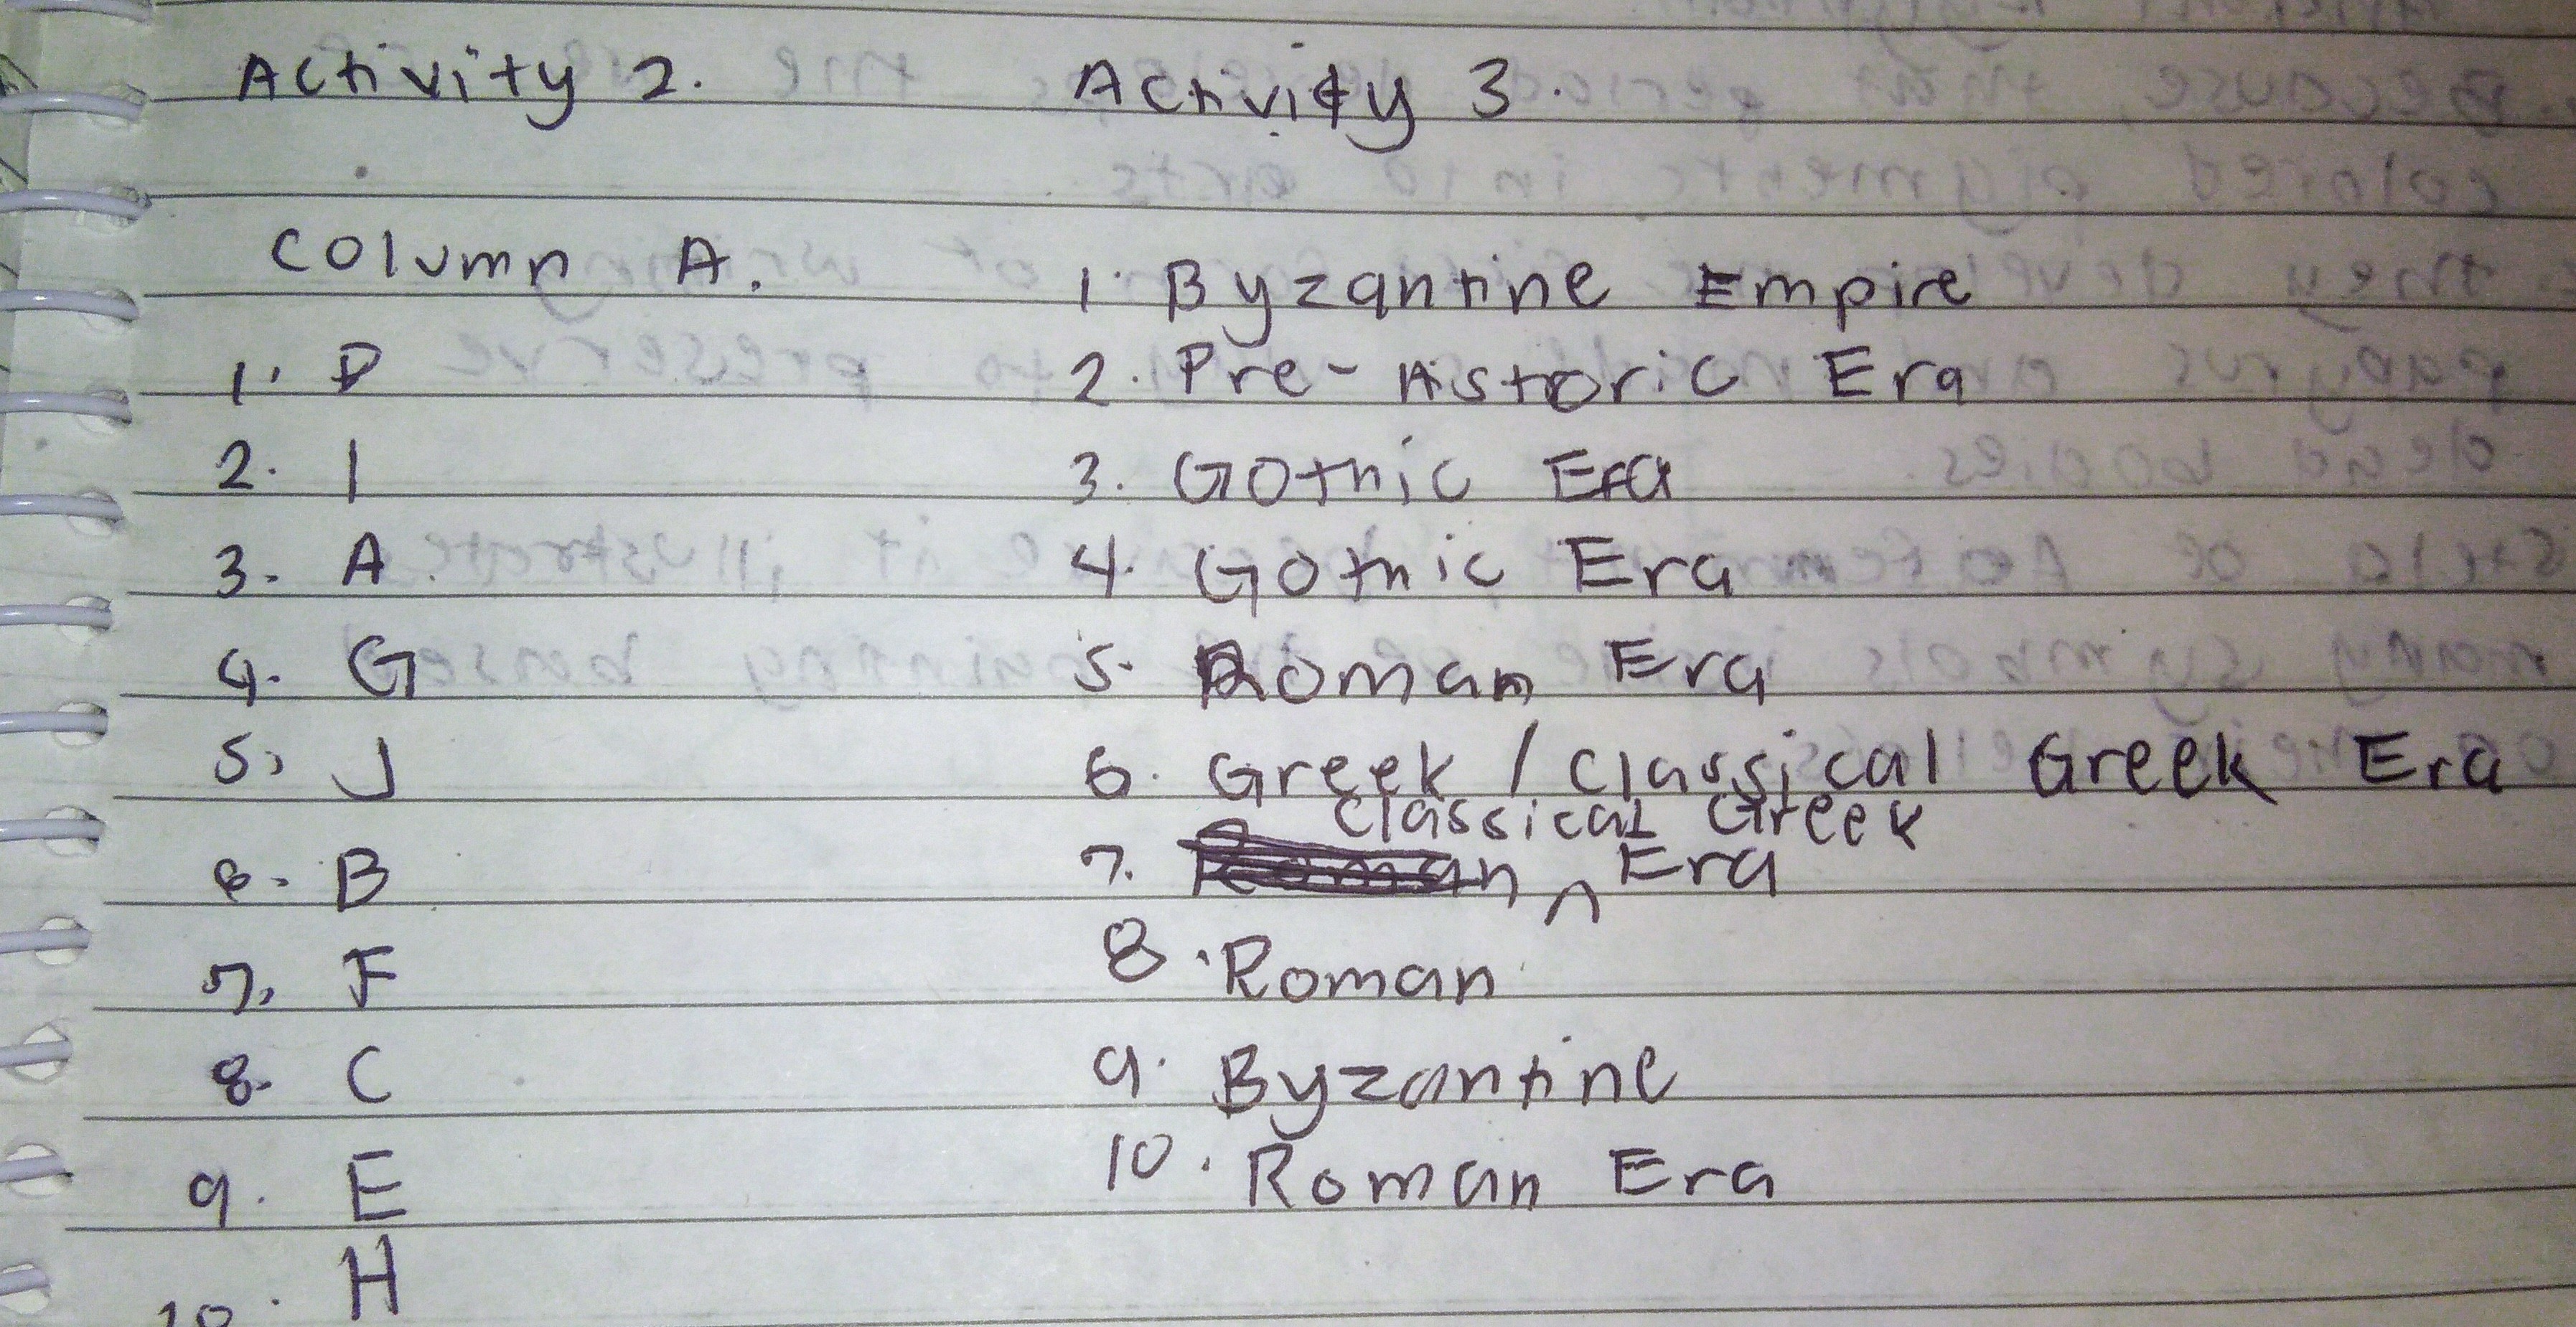 Activity 2.
Column A.
1. D
2. I
3. A
4. G
5. J
6. B
7. F
8. C
9. E
10. H
Activity 3.
1. Byzantine Empire
2. Pre-Historic Era
3. Gothic Era
4. Gothic Era
5. Roman Era
6. Greek / Classical Greek Era
7. Classical Greek Era
8. Roman
9. Byzantine
10. Roman Era